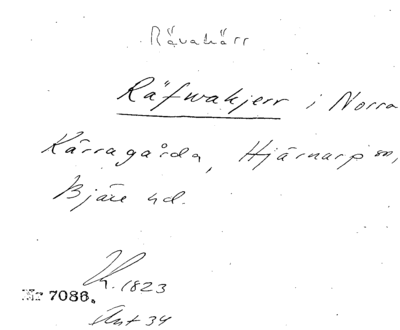 Rävakärr
Räfwakjerr i Norra
Kärragårda, Hjärnarp sn,
Bjäre hd.
Lk. 1823
Nr 7086.
Akt 34